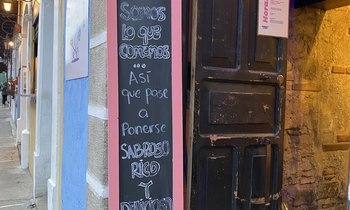 Somos
lo que
comemos
...
Así
que pase
a
Ponerse
SABROSO
RICO
Y